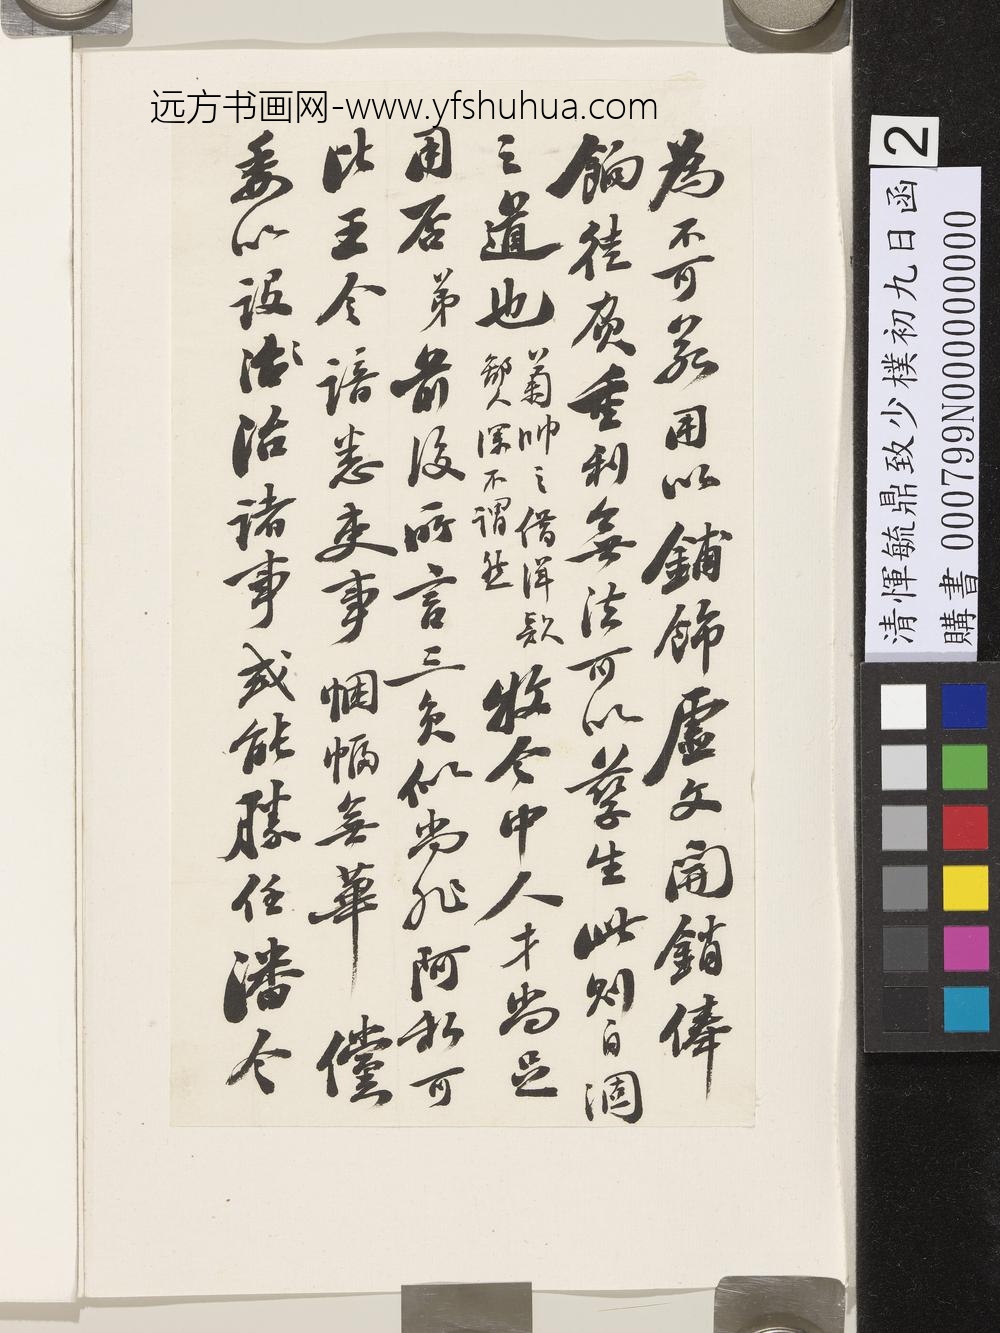 远方书画网-www.yfshuhua.com
為不可若用以鋪飾虛文開銷俸
餉徒負重利無法可以孳生此則自涸
之道也
菊帥之借洋款
鄙人深不謂然
牧令中人才尚足
用否弟前後所言三負似尚非阿私可
比王令諳悉吏事悃愊無華儻
委以設法治諸事或能勝任潘令
2
清惲毓鼎致少樸初九日函
購書 000799N000000000